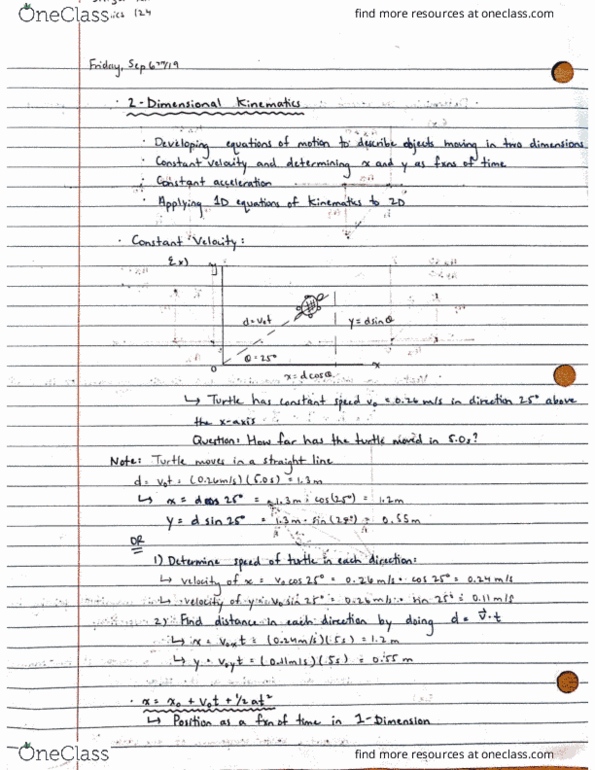 OneClass
find more resources at oneclass.com
ics 124
Friday, Sep 6th/19
· 2-Dimensional Kinematics
· Developing equations of motion to describe objects moving in two dimensions
· Constant velocity and determining x and y as fxns of time
· Constant acceleration
· Applying 1D equations of Kinematics to 2D
· Constant Velocity:
Ex)
y
d=v₀t
y=dsinθ
θ=25°
0
x
x=dcosθ
↳ Turtle has constant speed v₀ = 0.26 m/s in direction 25° above
the x-axis
Question: How far has the turtle moved in 5.0s?
Note: Turtle moves in a straight line
d = v₀t = (0.26m/s)(5.0s) = 1.3m
↳ x = dcos 25° = 1.3m · cos(25°) = 1.2m
y = d sin 25° = 1.3m · sin(25°) = 0.55m
OR
1) Determine speed of turtle in each direction:
↳ velocity of x = v₀cos25° = 0.26m/s · cos 25° = 0.24m/s
↳ velocity of y = v₀sin25° = 0.26m/s · sin 25° = 0.11m/s
2) Find distance in each direction by doing d = v⃗·t
↳ x = v₀ₓt = (0.24m/s)(5s) = 1.2m
↳ y = v₀yt = (0.11m/s)(5s) = 0.55m
· x = x₀ + v₀t + 1/2 at²
↳ Position as a fxn of time in 1-Dimension
OneClass
find more resources at oneclass.com